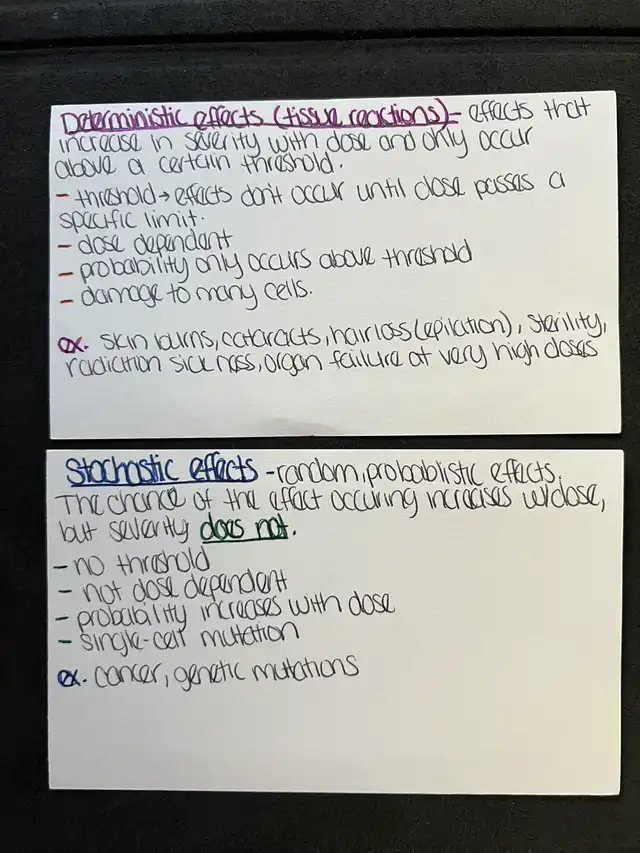 Deterministic effects (tissue reactions) - effects that
increase in severity with dose and only occur
above a certain threshold.
- threshold → effects don't occur until dose passes a
specific limit.
- dose dependent
- probability only occurs above threshold
- damage to many cells.
ex. skin burns, cataracts, hair loss (epilation), sterility,
radiation sickness, organ failure at very high doses
Stochastic effects - random, probablistic effects.
The chance of the effect occuring increases w/dose,
but severity does not.
- no threshold
- not dose dependent
- probability increases with dose
- single-cell mutation
ex. cancer, genetic mutations